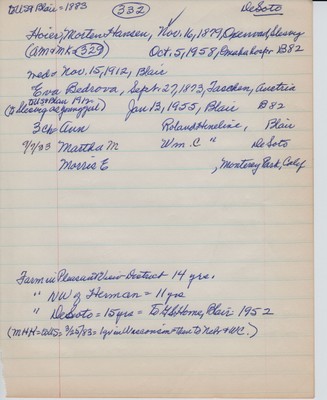 to USA Blair = 1883 (332) DeSoto
Hoier, Morten Hansen, Nov. 16, 1879, Openrod, Slesvig
(AM+MK = 329) Oct. 5, 1958, Omaha hosp. B82
wed = Nov. 15, 1912, Blair
Eva Bedrova, Sept. 27, 1873, Taschen, Austria
to USA Blair 1912
(to Slesvig as young gal) Jan 13, 1955, Blair B82
3 ch = Ann Roland Heneline, Blair
9/7/83 Martha M Wm. C " DeSoto
Morris E , Monterey Park, Calif
Farm in Pleasant View District 14 yrs.
" NW of Herman = 11 yrs
" DeSoto = 15 yrs = to GS Home, Blair 1952
(MHH = to US = 3/25/83 = 1 yr in Wisconsin + then to Nebr + WC.)